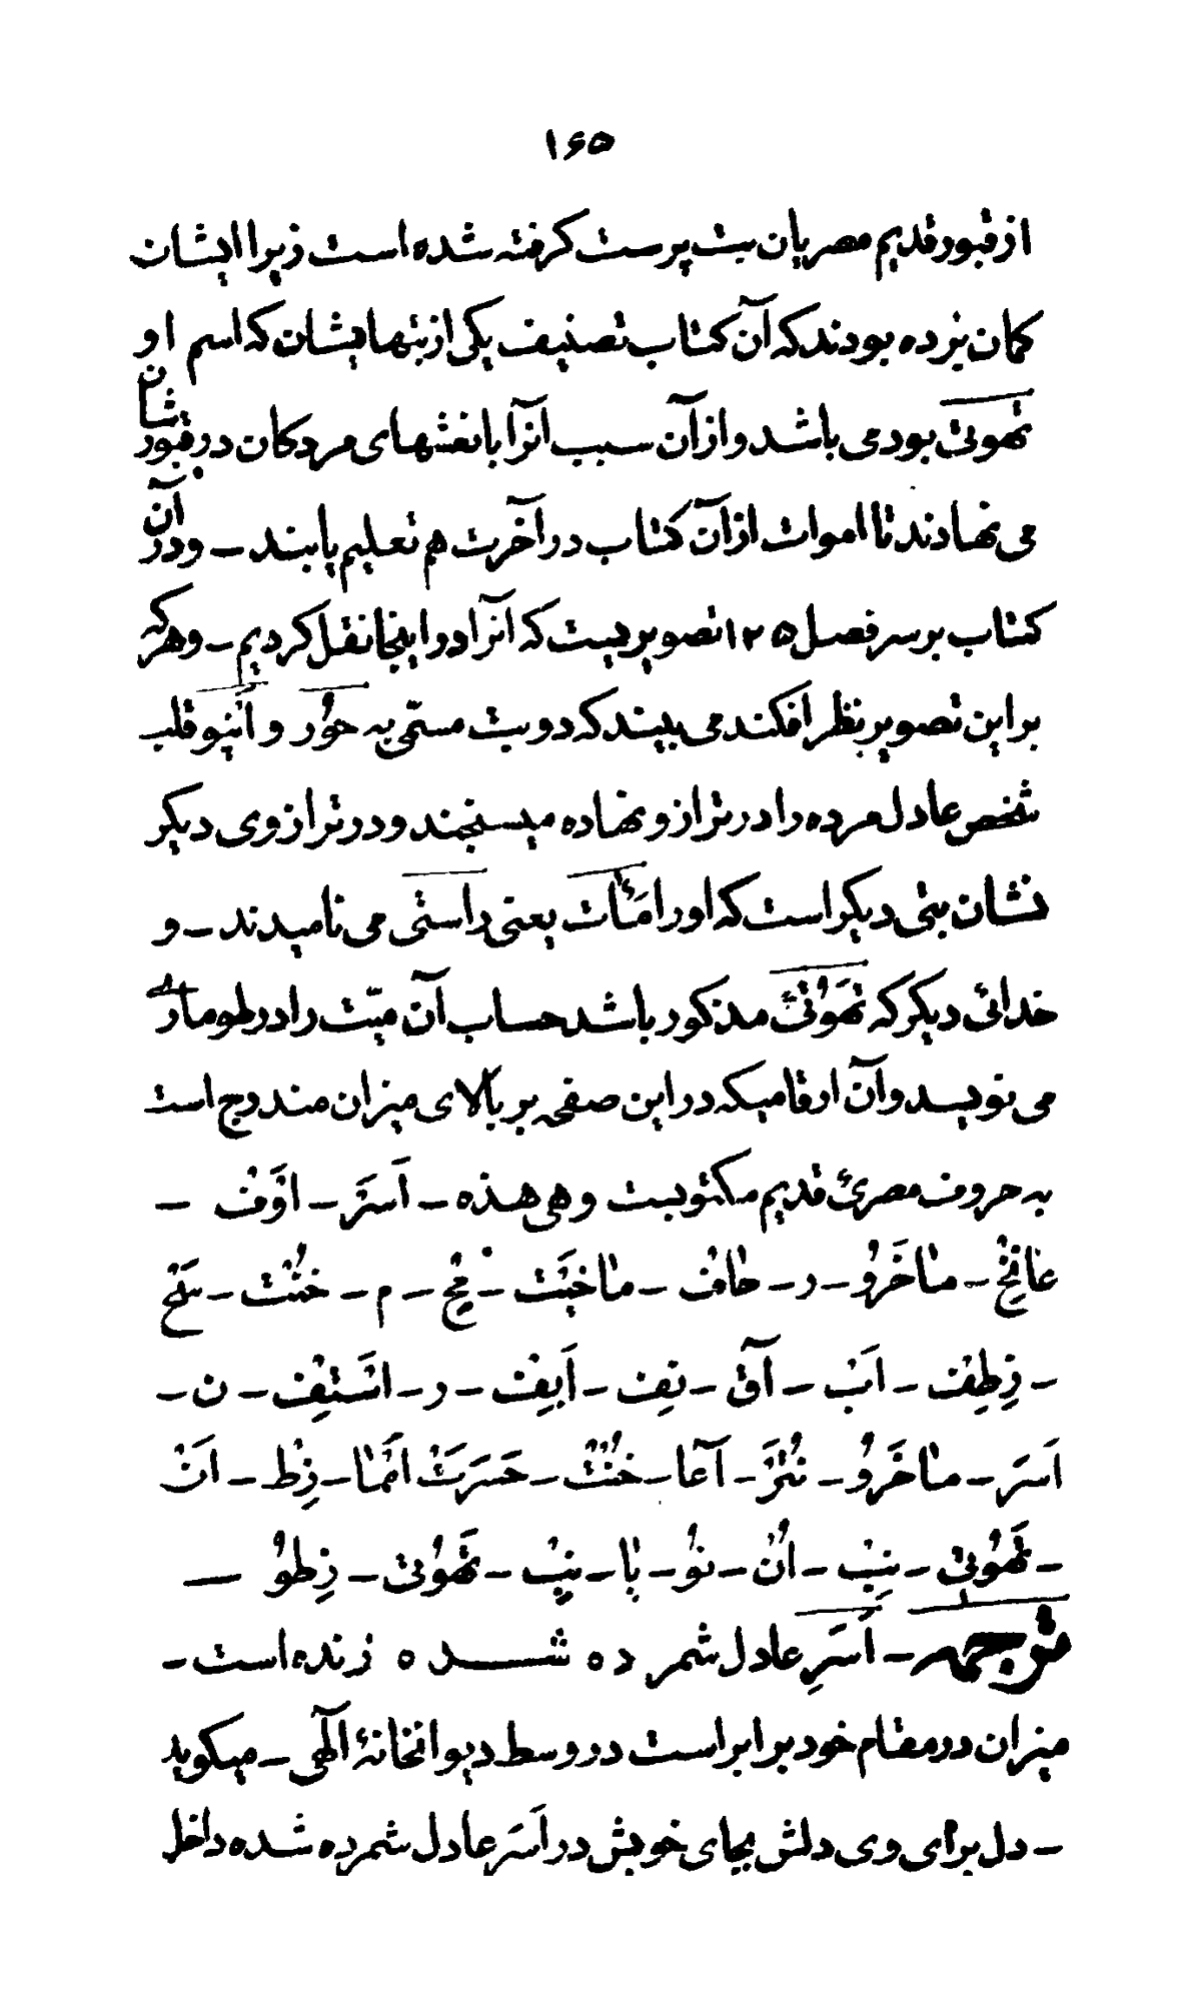 ۱۶۵
از قبور قدیم مصریان بت پرست کرفته شده است زیرا ایشان
کمان برده بودند که آن کتاب تصنیف یکی از بتهایشان که اسم او
تهوتی بود می باشد و از آن سبب آنرا با نعشهای مردکان در قبورشان
می نهادند تا اموات از آن کتاب در آخرت هم تعلیم یابند – و در آن
کتاب بر سر فصل ۱۲۵ تصویریست که آنرا در اینجا نقل کردیم – و هر که
بر این تصویر نظر افکند می بیند که دو بت مسمّی به حُوْر و اَنپو قلب
شخص عادل مرده را در ترازو نهاده میسنجند و در ترازوی دیکر
نشان بتی دیکر است که او را مَأْات یعنی راستی می نامیدند – و
خدائی دیکر که تهَوُتئ مذکور باشد حساب آن میّت را در طوماری
می نویسد و آن ارقامیکه در این صفحه بر بالای میزان مندرج است
به حروف مصرئ قدیم مکتوبست و هی هذه – اَسَر – اؤَفْ –
عانِخْ – ماخَرُو – ر – طافْ – ماخِیَت – مِحْ – م – خُنْت – سَخْ
– زِطِفْ – اَبْ – آقْ – نِفْ – اَبِفْ – ر – اسْتِفْ – ن –
اَسَر – ماخَرُو – نُتَرْ – آعا – خُنْتْ – حَسَرَتْ اَمَّا – زِطْ – اَنْ
– تَهُوُتی – نِبْ – اُنْ – نُو – با – نِبْ – تَهُوُتی – زِطوُ –
ترجمه – اَسَرِ عادل شمرده شده زنده است –
میزان در مقام خود برابر است در وسط دیوانخانهٔ الٓهی – میکوید
– دل برای وی دلش بجای خویش در اَسَر عادل شمرده شده داخل